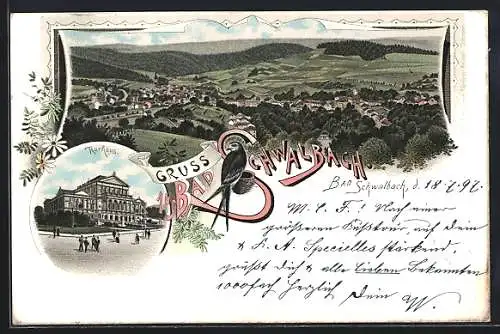 Kurhaus.
GRUSS
a. BAD SCHWALBACH.
BAD Schwalbach, d. 18 7. 97.
M. l. F.! Nach einer
größeren auf Dein
& K. A. Specielles stärkend,
grüßt Dich & alle lieben Bekannten
1000fach herzlich Dein W.